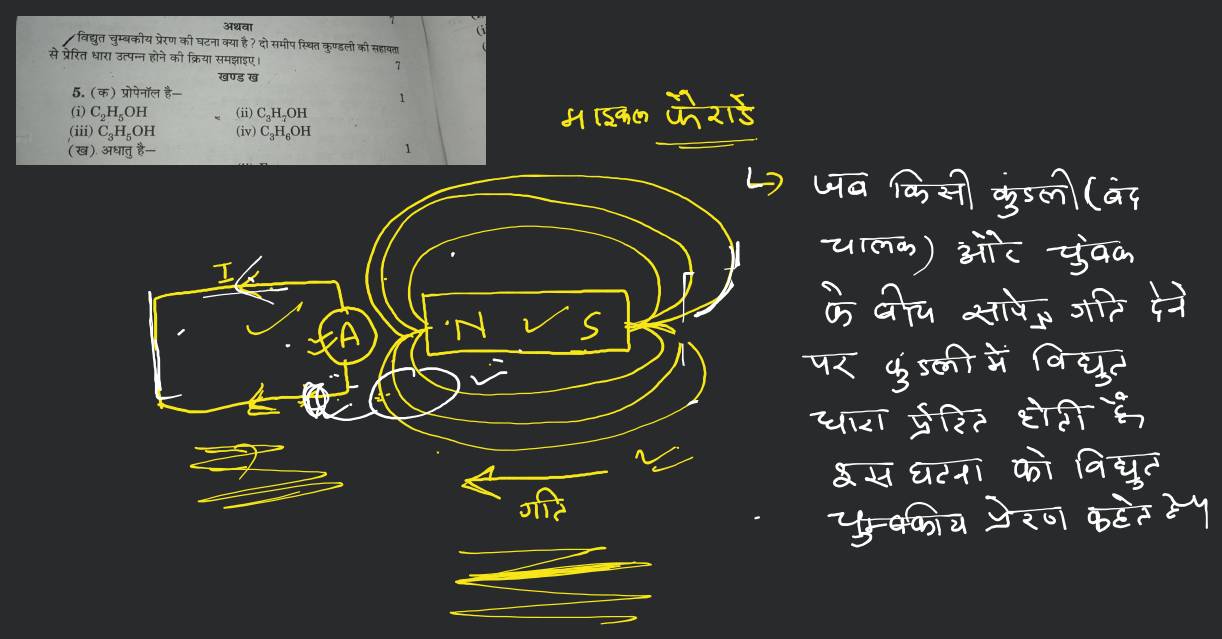 अथवा
7
विद्युत चुम्बकीय प्रेरण की घटना क्या है ? दो समीप स्थित कुण्डली की सहायता
से प्रेरित धारा उत्पन्न होने की क्रिया समझाइए।
7
खण्ड ख
5. (क) प्रोपेनॉल है—
1
(i) C₂H₅OH (ii) C₃H₇OH
(iii) C₃H₅OH (iv) C₃H₆OH
(ख) अधातु है—
1
माइकल फैराडे
जब किसी कुंडली (बंद
चालक) और चुंवक
के बीच सापेक्ष गति देने
पर कुंडली में विद्युत
धारा प्रेरित होती है
इस घटना को विद्युत
चुम्बकीय प्रेरण कहते है।
I
A
N S
गति